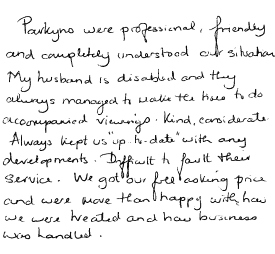 Parkyns were professional, friendly
and completely understood our situation
My husband is disabled and they
always managed to make the time to do
accompanied viewings. Kind, considerate
Always kept us "up to date" with any
developments. Difficult to fault their
service. We got our full asking price
and were more than happy with how
we were treated and how business
was handled.